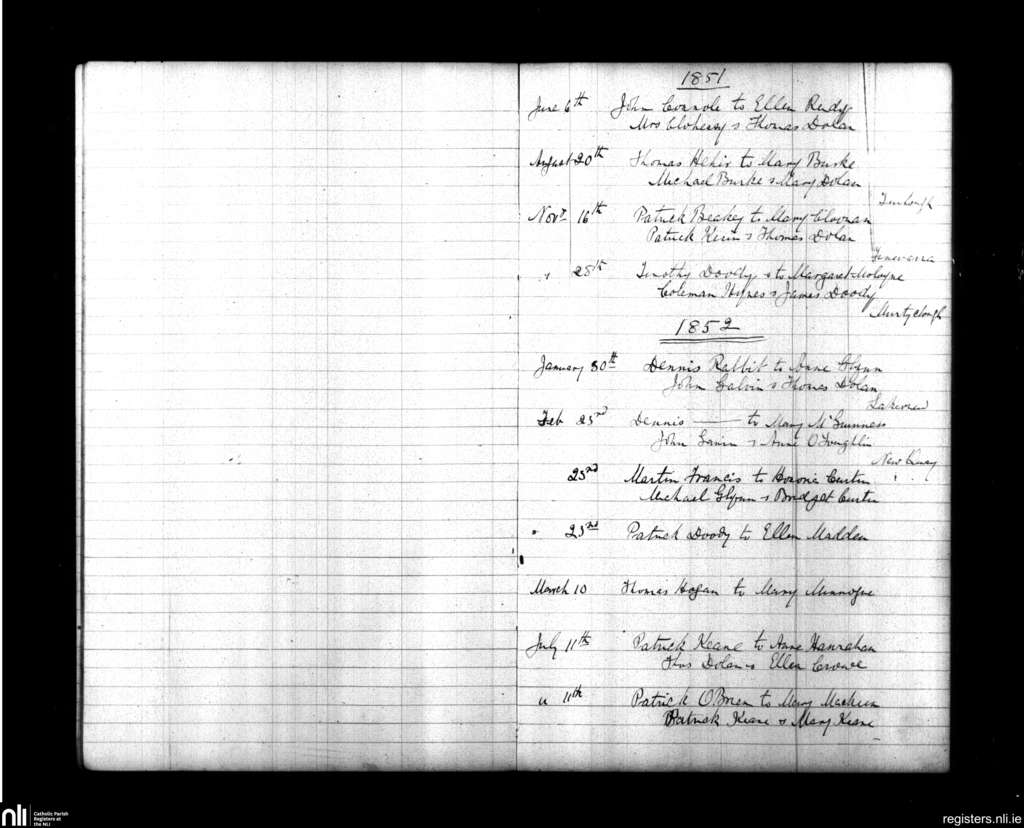 1851
June 6th John Connole to Ellen Ready
Mrs Cloherty & Thomas Dolan
August 20th Thomas Hehir to Mary Burke
Michael Burke & Mary Dolan
Turlough
Novr 16th Patrick Beakey to Mary Cloonan
Patrick Kerin & Thomas Dolan
Finevarra
" 28th Timothy Doody & to Margaret
Coleman Hynes & James Doody
Murtyclough
1852
January 30th Dennis Rabbit to Anne Glynn
John Galvin & Thomas Dolan
Lakeview
Feb 23rd Dennis —— to Mary McGuinness
John & Anne O'Loughlin
New Quay
23rd Martin Francis to Honoria Curtin
Michael Glynn & Bridget Curtin
" 23rd Patrick Doody to Ellen Madden
March 10 Thomas Hogan to Mary Minnogue
July 11th Patrick Keane to Anne Hanrahan
Thos Dolan & Ellen Crowe
" 11th Patrick OBrien to Mary
Patrick Keane & Mary Keane
nli Catholic Parish
Registers at
the NLI
registers.nli.ie